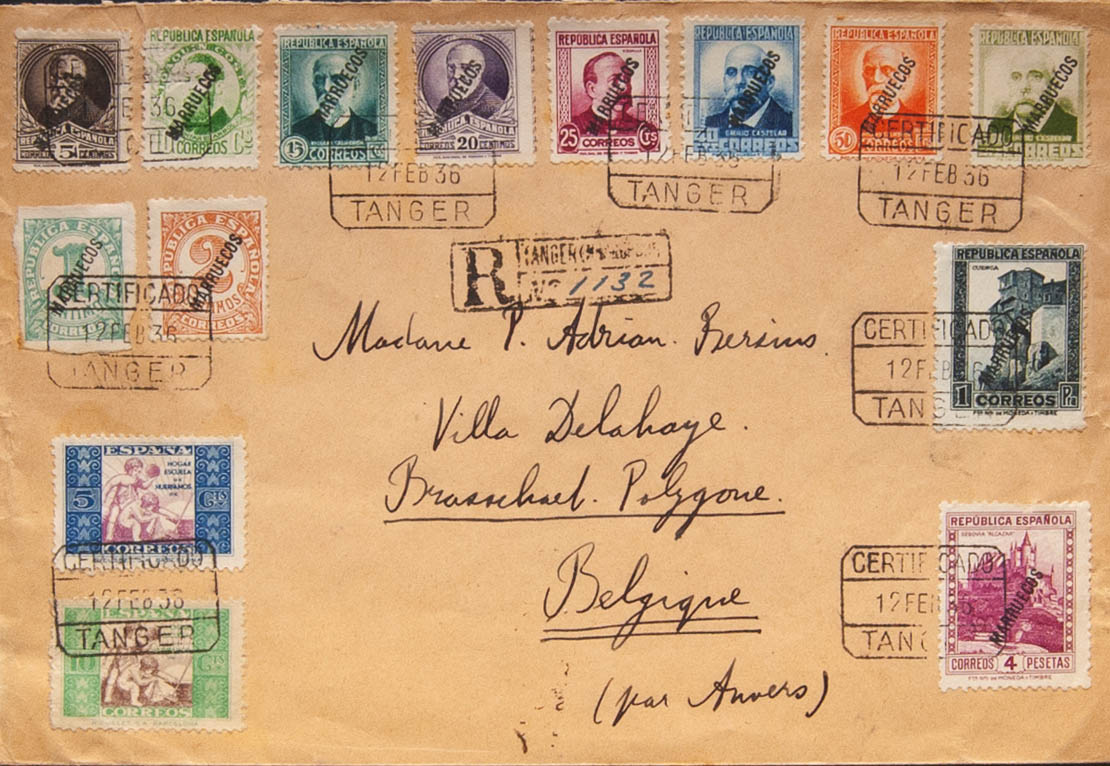 REPÚBLICA ESPAÑOLA
5
MARRUECOS
REPÚBLICA ESPAÑOLA
MARRUECOS
CORREOS
REPÚBLICA ESPAÑOLA
MARRUECOS
15 CORREOS
MARRUECOS
REPÚBLICA ESPAÑOLA
20 CÉNTIMOS
REPÚBLICA ESPAÑOLA
MARRUECOS
25 CTS
CORREOS
REPÚBLICA ESPAÑOLA
MARRUECOS
EMILIO CASTELAR
CORREOS
REPÚBLICA ESPAÑOLA
MARRUECOS
50 CORREOS
REPÚBLICA ESPAÑOLA
MARRUECOS
CORREOS
12 FEB 36
TANGER
12 FEB 36
TANGER
CERTIFICADO
12 FEB 36
TANGER
REPÚBLICA ESPAÑOLA
1
MARRUECOS
CORREOS
REPÚBLICA ESPAÑOLA
2
MARRUECOS
CORREOS
CERTIFICADO
12 FEB 36
TANGER
R
TANGER
Nº 1132
REPÚBLICA ESPAÑOLA
CUENCA
MARRUECOS
1 CORREOS Pta
FCA. NAL. DE MONEDA Y TIMBRE
CERTIFICADO
12 FEB 36
TANGER
Madame P. Adrian Bersius.
Villa Delahaye.
Brasschaet. Polygone.
Belgique
(par Anvers)
ESPAÑA
HOGAR
ESCUELA
DE
HUÉRFANOS
DE
5 Cts
CORREOS
CERTIFICADO
12 FEB 36
TANGER
ESPAÑA
10 Cts
CORREOS
REPÚBLICA ESPAÑOLA
SEGOVIA "ALCAZAR"
MARRUECOS
CORREOS 4 PESETAS
FCA. NAL. DE MONEDA Y TIMBRE
CERTIFICADO
12 FEB 36
TANGER